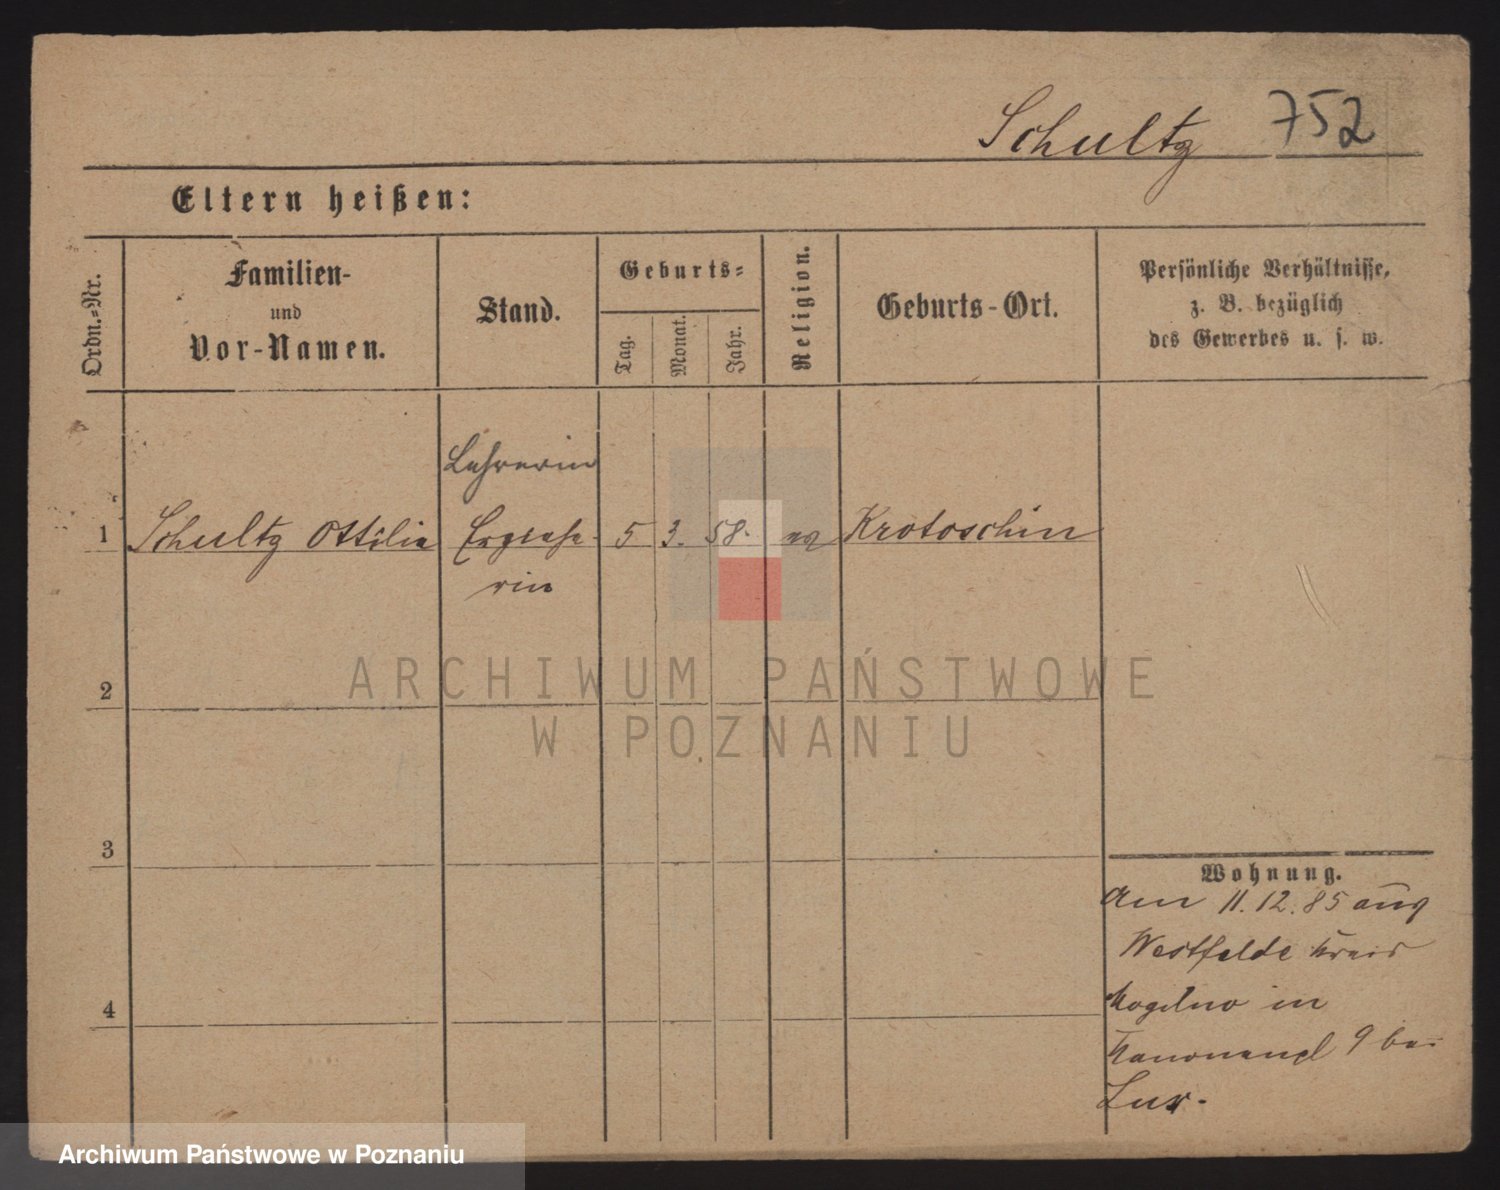 Schultz 752
Eltern heißen:
Ordn.-Nr.
Familien-
und
Vor-Namen.
Stand.
Geburts-
Tag.
Monat.
Jahr.
Religion.
Geburts-Ort.
Persönliche Verhältnisse,
z. B. bezüglich
des Gewerbes u. s. w.
Lehrerin
1 Schultz Ottilie Erziehe- 5 3. 58. ev Krotoschin
rin
2
3
4
Wohnung.
Am 11.12.85 aus
Westfelde Kreis
Mogilno in
Kanonenpl 9 bei
ARCHIWUM PAŃSTWOWE
W POZNANIU
Archiwum Państwowe w Poznaniu